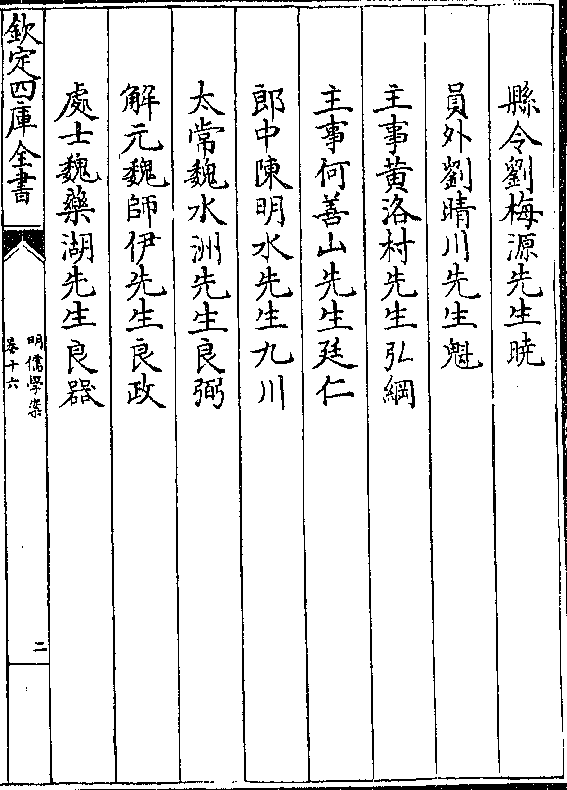 縣令劉梅源先生曉
員外劉晴川先生魁
主事黄洛村先生弘綱
主事何善山先生廷仁
郎中陳明水先生九川
太常魏水洲先生良弼
解元魏師伊先生良政
處士魏藥湖先生良器
欽定四庫全書
明儒學案
卷十六
二